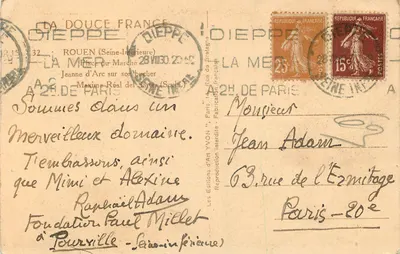 LA DOUCE FRANCE
ROUEN (Seine-Inférieure)
Jeanne d'Arc sur son bûcher
DIEPPE
LA MER
A 2H. DE PARIS
DIEPPE
28 VIII 30
SEINE INFRE
DIEPPE
LA MER
A 2H. DE PARIS
REPUBLIQUE FRANÇAISE
25c
REPUBLIQUE FRANÇAISE
15c
Sommes dans un
merveilleux domaine.
T'embrassons, ainsi
que Mimi et Alexine
Raphaël Adam
Fondation Paul Millet
à Pourville - (Seine-inférieure)
Les Éditions d'Art YVON
Fabrication Française
Reproduction interdite
Monsieur
Jean Adam
63, rue de l'Ermitage
Paris - 20e